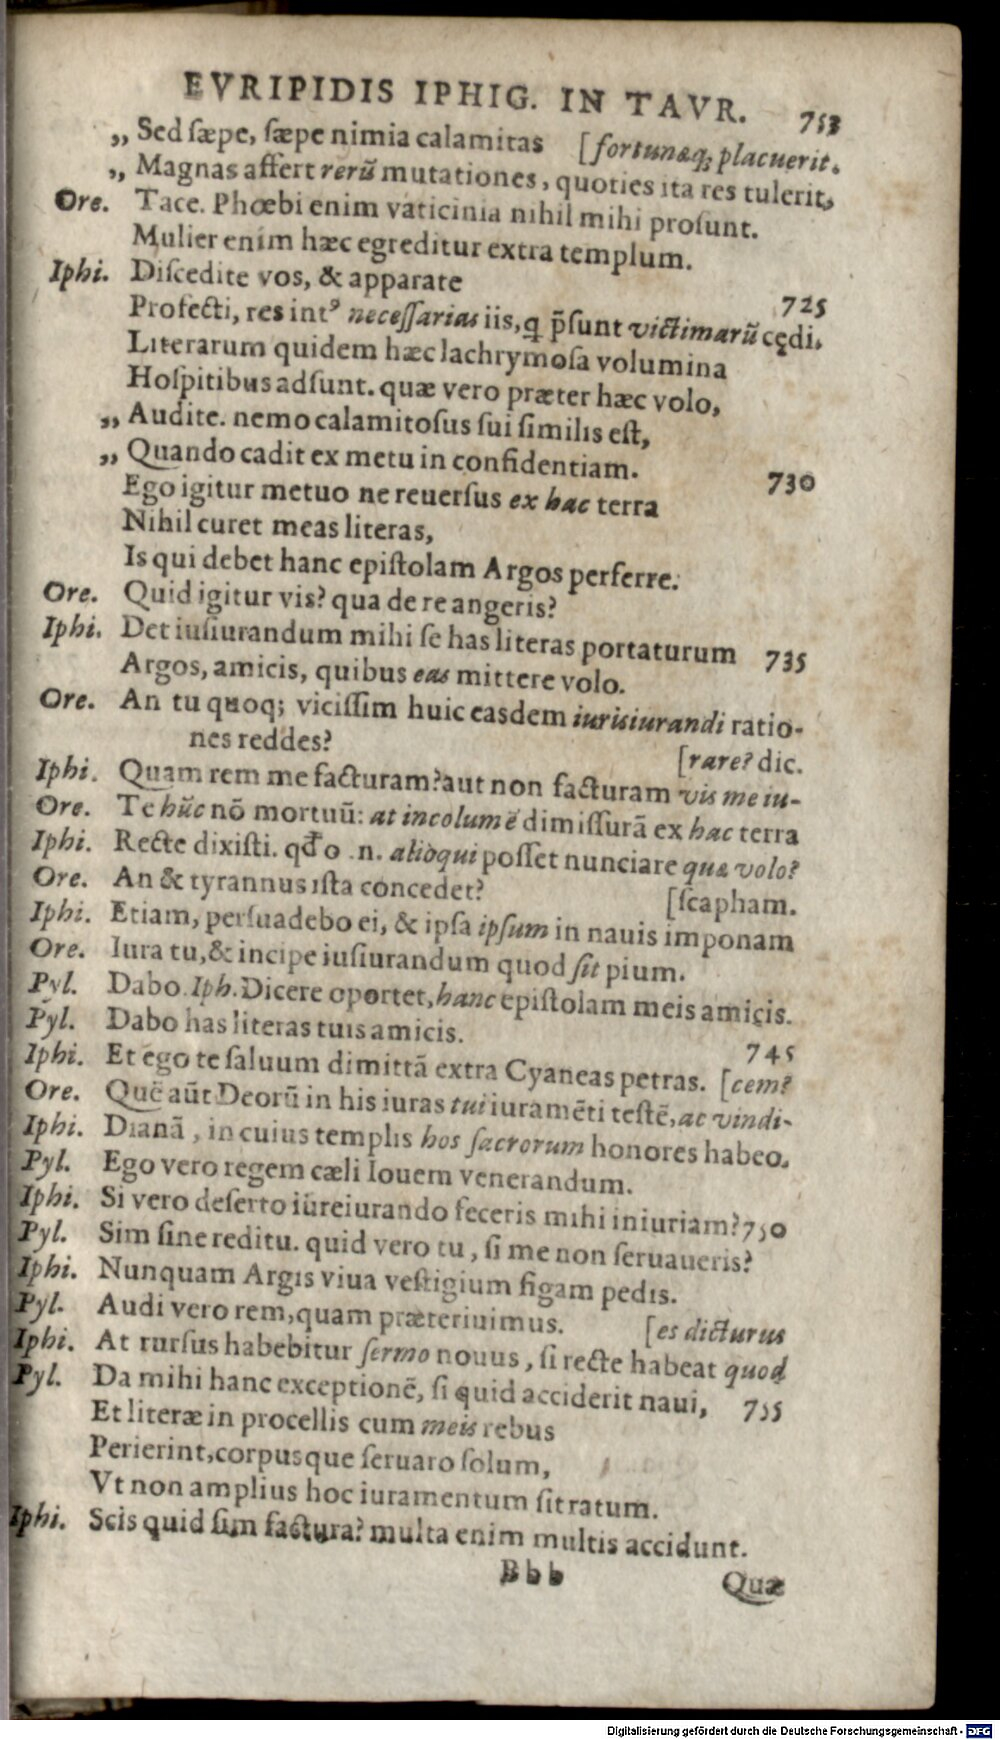 EVRIPIDIS IPHIG. IN TAVR. 753
„ Sed sæpe, sæpe nimia calamitas [fortunæq; placuerit.
„ Magnas affert rerū mutationes, quoties ita res tulerit,
Ore. Tace. Phœbi enim vaticinia nihil mihi prosunt.
Mulier enim hæc egreditur extra templum.
Iphi. Discedite vos, & apparate 725
Profecti, res intꝰ necessarias iis, q p̄sunt victimarū cędi.
Literarum quidem hæc lachrymosa volumina
Hospitibus adsunt. quæ vero præter hæc volo,
„ Audite. nemo calamitosus sui similis est,
„ Quando cadit ex metu in confidentiam. 730
Ego igitur metuo ne reuersus ex hac terra
Nihil curet meas literas,
Is qui debet hanc epistolam Argos perferre.
Ore. Quid igitur vis? qua de re angeris?
Iphi. Det iusiurandum mihi se has literas portaturum 735
Argos, amicis, quibus eas mittere volo.
Ore. An tu quoq; vicissim huic easdem iurisiurandi ratio-
nes reddes? [rare? dic.
Iphi. Quam rem me facturam? aut non facturam vis me iu-
Ore. Te hūc nō mortuū: at incolumē dimissurā ex hac terra
Iphi. Recte dixisti. qđo .n. alioqui posset nunciare quæ volo?
Ore. An & tyrannus ista concedet? [scapham.
Iphi. Etiam, persuadebo ei, & ipsa ipsum in nauis imponam
Ore. Iura tu, & incipe iusiurandum quod sit pium.
Pyl. Dabo. Iph. Dicere oportet, hanc epistolam meis amicis.
Pyl. Dabo has literas tuis amicis. 745
Iphi. Et ego te saluum dimittā extra Cyaneas petras. [cem?
Ore. Quē aūt Deorū in his iuras tui iuramēti testē, ac vindi-
Iphi. Dianā, in cuius templis hos sacrorum honores habeo.
Pyl. Ego vero regem cæli Iouem venerandum.
Iphi. Si vero deserto iureiurando feceris mihi iniuriam? 750
Pyl. Sim sine reditu. quid vero tu, si me non seruaueris?
Iphi. Nunquam Argis viua vestigium figam pedis.
Pyl. Audi vero rem, quam præteriuimus. [es dicturus
Iphi. At rursus habebitur sermo nouus, si recte habeat quod
Pyl. Da mihi hanc exceptionē, si quid acciderit naui, 755
Et literæ in procellis cum meis rebus
Perierint, corpusque seruaro solum,
Vt non amplius hoc iuramentum sit ratum.
Iphi. Scis quid sim factura? multa enim multis accidunt.
Bbb Quæ
Digitalisierung gefördert durch die Deutsche Forschungsgemeinschaft - DFG